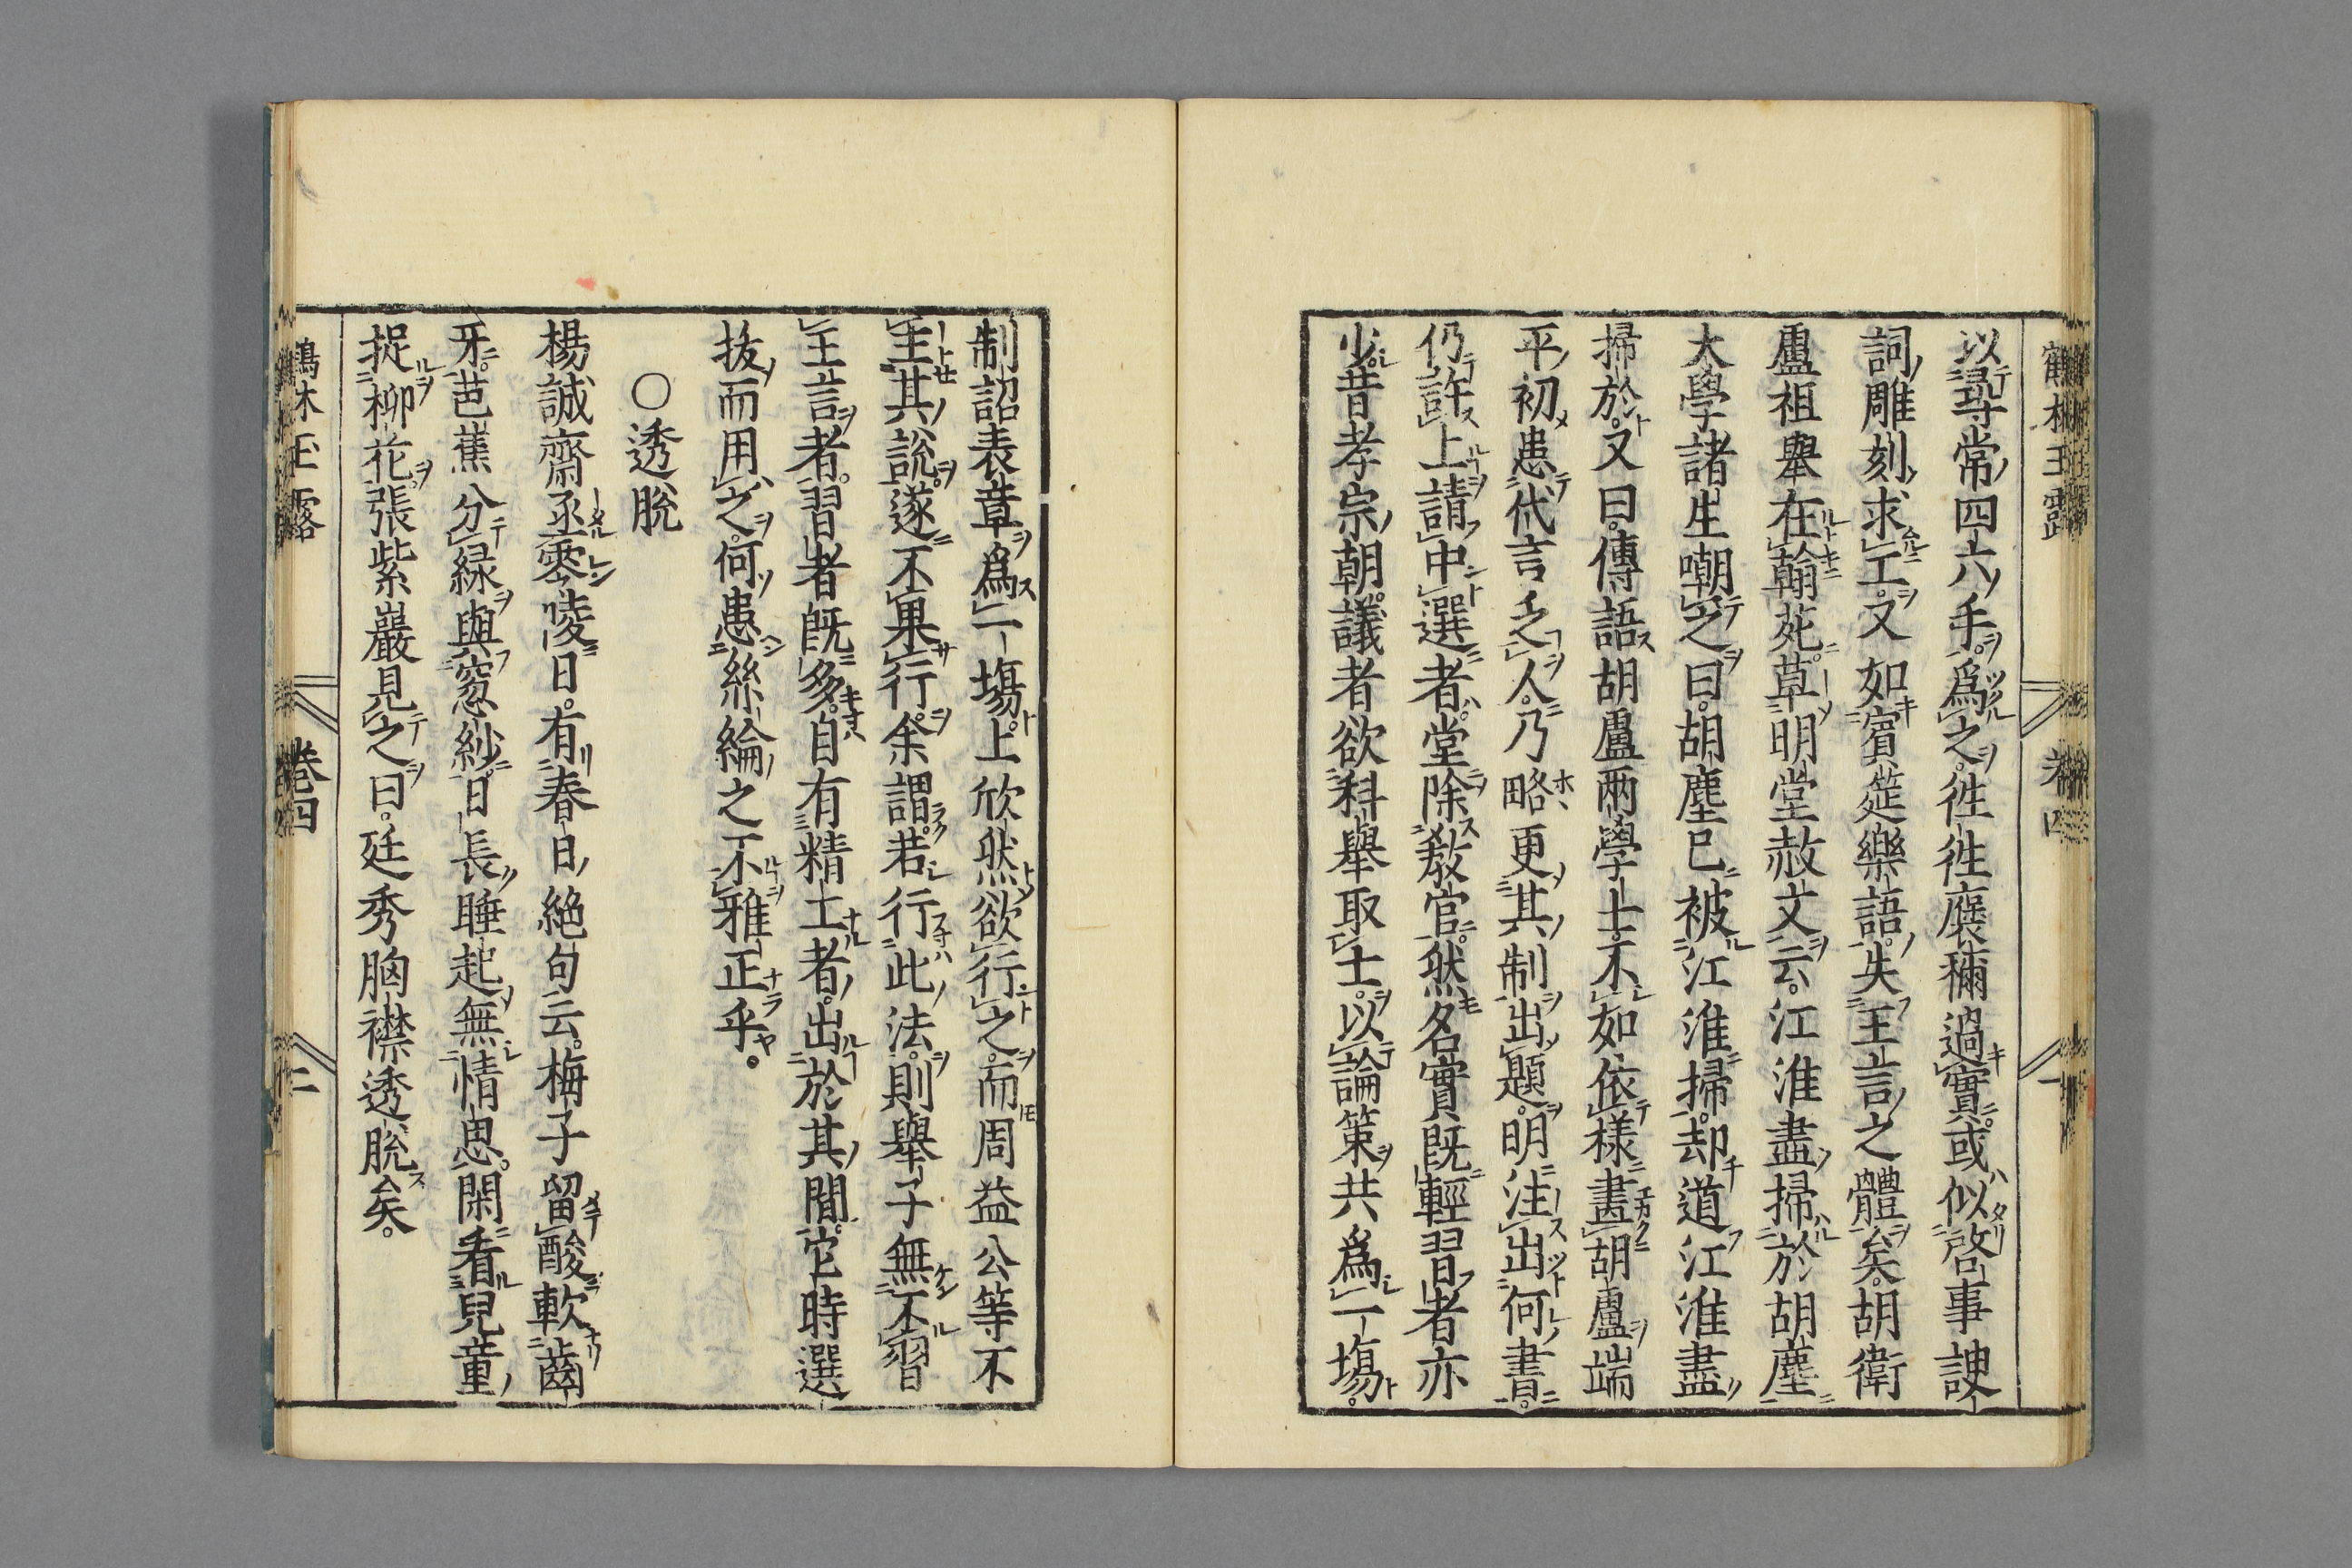 鶴林玉露 卷四 一
以尋常四六手爲之。徃徃褒稱過實。或似啓事諛
詞雕刻求工。又如賓筵樂語。失王言之體矣。胡衛
盧祖舉在翰苑。草明堂赦文云。江淮盡掃於胡塵
大學諸生嘲之曰。胡塵已被江淮掃。却道江淮盡
掃於。又曰。傳語胡盧兩學士。不如依樣畫胡盧端
平初患代言乏人。乃略更其制出題。明注出何書。
仍許上請中選者。堂除教官。然名實既輕習者亦
少。昔孝宗朝。議者欲科舉取士。以論策共爲一場。
制詔表章爲一場。上欣然欲行之。而周益公等不
主其說。遂不果行。余謂。若行此法。則舉子無不習
王言者。習者既多。自有精工者。出於其間。它時選
拔而用之。何患絲綸之不雅正乎。
〇透脫
楊誠齋丞零陵日。有春日絶句云。梅子留酸軟齒
牙。芭蕉分緑與窓紗。日長睡起無情思。閑看兒童
捉柳花。張紫巖見之曰。廷秀胸襟透脫矣。
鶴林玉露 卷四 二